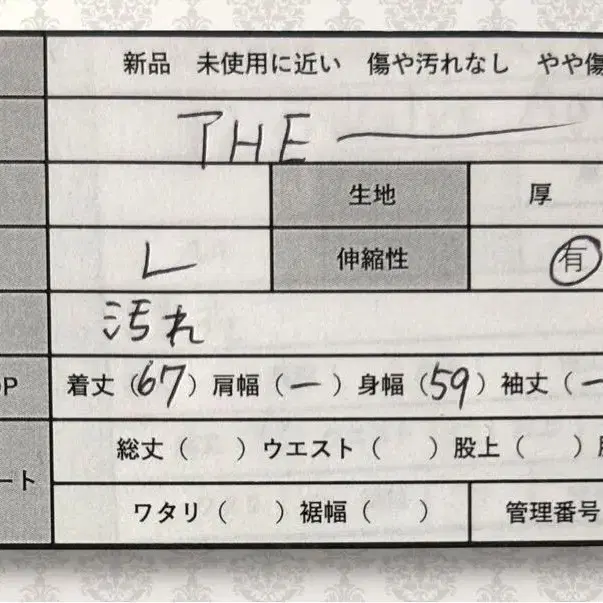 新品 未使用に近い 傷や汚れなし やや傷
THE
生地 厚
L 伸縮性 有
汚れ
OP 着丈（67）肩幅（ー）身幅（59）袖丈（ー
総丈（ ）ウエスト（ ）股上（ ）
ート
ワタリ（ ）裾幅（ ） 管理番号